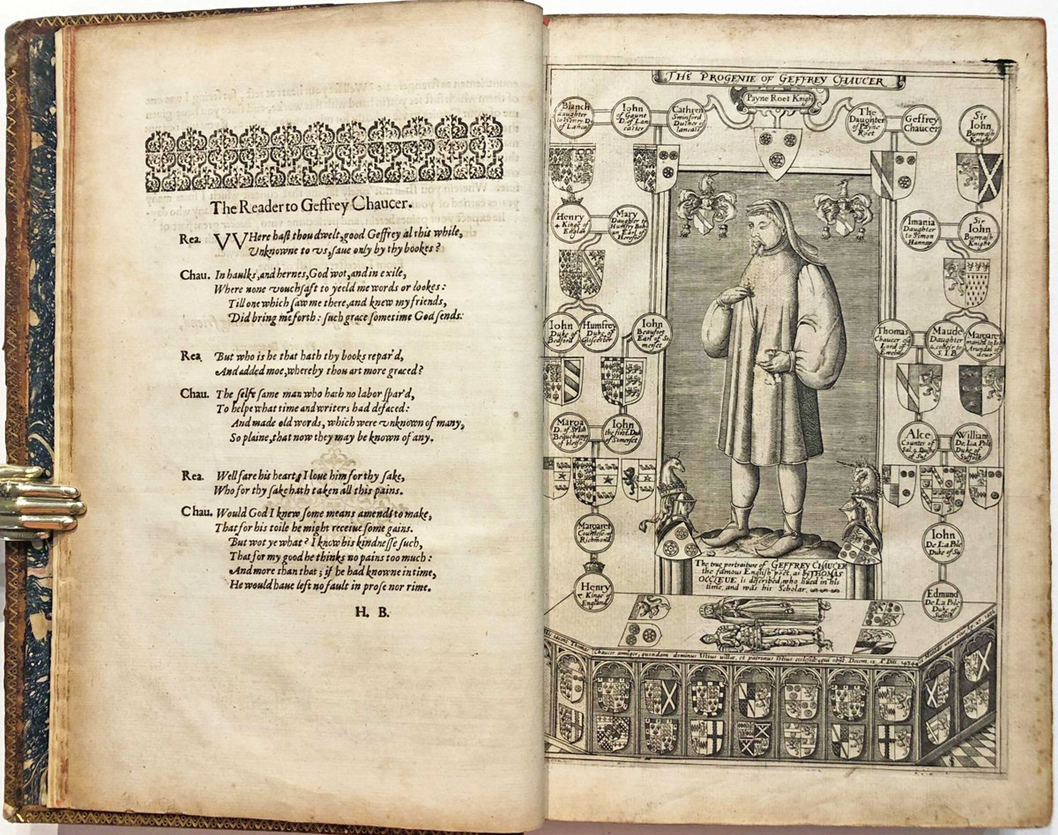 The Reader to Geffrey Chaucer.
Rea. VVHere haſt thou dwelt, good Geffrey al this while,
Unknowne to vs, ſaue only by thy bookes?
Chau. In haulks, and hernes, God wot, and in exile,
Where none vouchſaft to yeeld me words or lookes:
Till one which ſaw me there, and knew my friends,
Did bring me forth: ſuch grace ſometime God ſends.
Rea. But who is he that hath thy books repar'd,
And added moe, whereby thou art more graced?
Chau. The ſelfe ſame man who hath no labor ſpar'd,
To helpe what time and writers had defaced:
And made old words, which were unknown of many,
So plaine, that now they may be known of any.
Rea. Well fare his heart; I loue him for thy ſake,
Who for thy ſake hath taken all this pains.
Chau. Would God I knew ſome means amends to make,
That for his toile he might receiue ſome gains.
But wot ye what? I know his kindneſſe ſuch,
That for my good he thinks no pains too much:
And more than that; if he had knowne in time,
He would haue left no fault in proſe nor rime.
H. B.
THE PROGENIE OF GEFFREY CHAUCER
Payne Roet Knight
Blanch daughter to Henry D. of Lanca
Iohn of Gaunt D. of Lancaster
Cathren Swinford Duches of Lancast
The Daughter of Payne Roet
Geffrey Chaucer
Sir Iohn Burwash Knight
Henry 4 King of Englād
Mary Daughter to Humfrey Earl of Hereford
Imania Daughter to Simon Hannap
Sir Iohn Burwash Knight
Iohn Duke of Bedford
Humfrey Duke of Glocester
Iohn Beaufort Earl of Somerset
Thomas Chaucer Lord of
Maude Daughter & coheir to S. I. B.
Margaret
Iohn the first Duk of Somerset
Alce Countes of
William De La Pole Duke of Suffolk
Margaret Countess of Richmond
Iohn De La Pole Duke of Su
Henry 7 King of England
Edmund De La Pole Duke of Suffolk
The true portraiture of GEFFREY CHAUCER
the famous English poet, as by THOMAS
OCCLEUE is described who liued in his
time, and was his Scholar.
Chaucer armiger, quondam dominus istius villæ, et patronus istius ecclesiæ, qui obijt